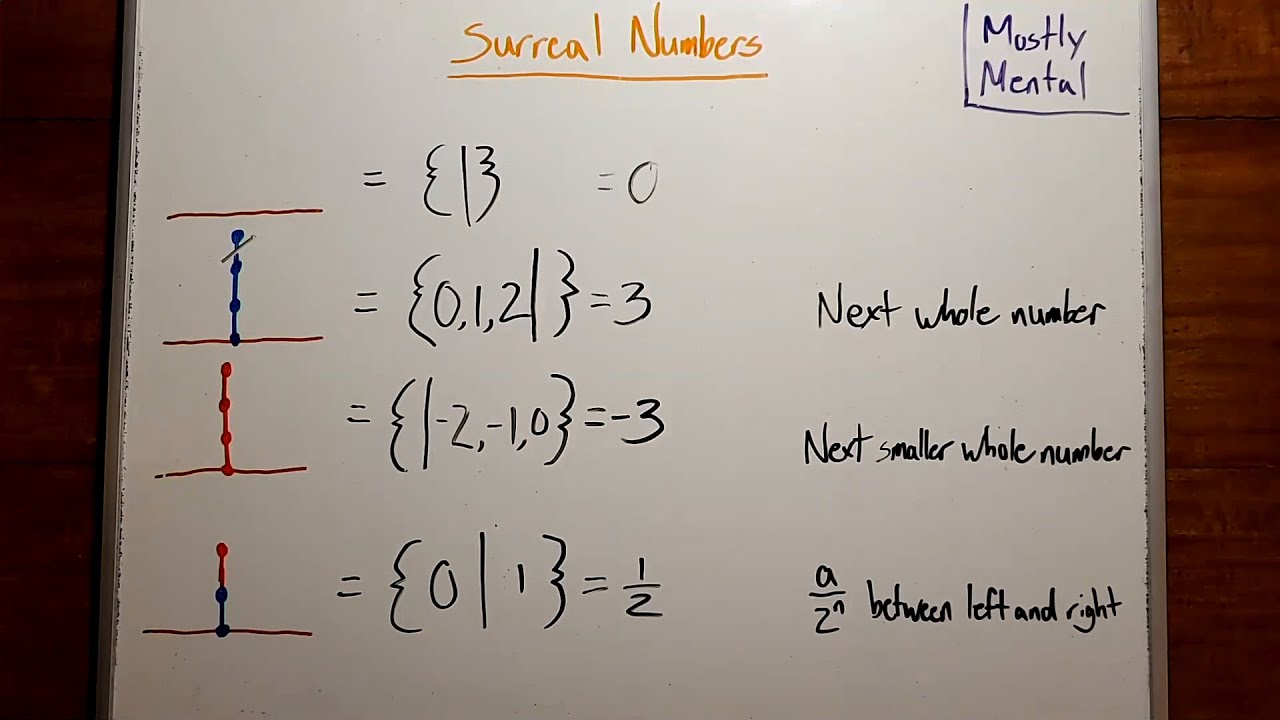 Surreal Numbers
Mostly
Mental
= { | } = 0
= {0,1,2| } = 3
Next whole number
= { |-2,-1,0} = -3
Next smaller whole number
= {0 | 1} = 1/2
a/2ⁿ between left and right